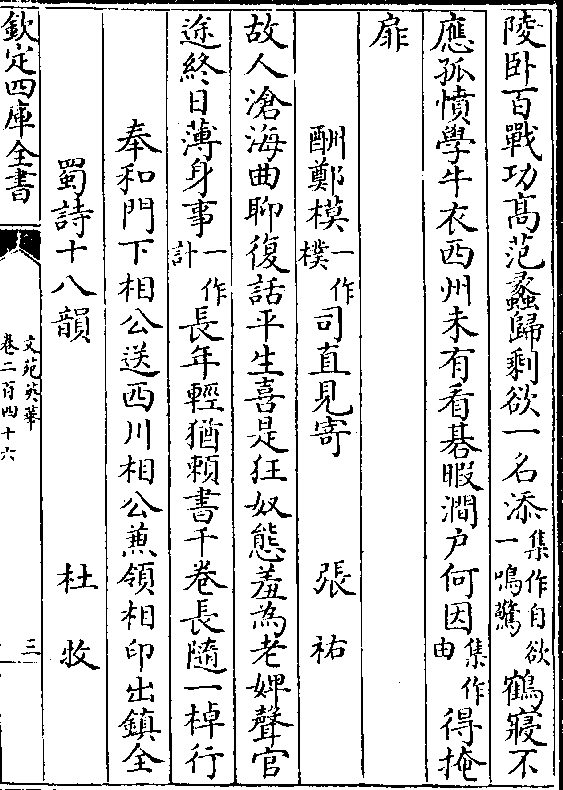 陵卧百戰功髙范蠡歸剩欲一名添集作自欲一鳴驚鶴寢不
應孤憤學牛衣西州未有看碁暇澗户何因集作由得掩
扉
酬鄭模一作樸司直見寄　張祐
故人滄海曲聊復話平生喜是狂奴態羞為老婢聲官
途終日薄身事一作計長年輕猶頼書千卷長隨一棹行
奉和門下相公送西川相公兼領相印出鎮全
蜀詩十八韻　杜牧
欽定四庫全書
文苑英華
卷二百四十六
三